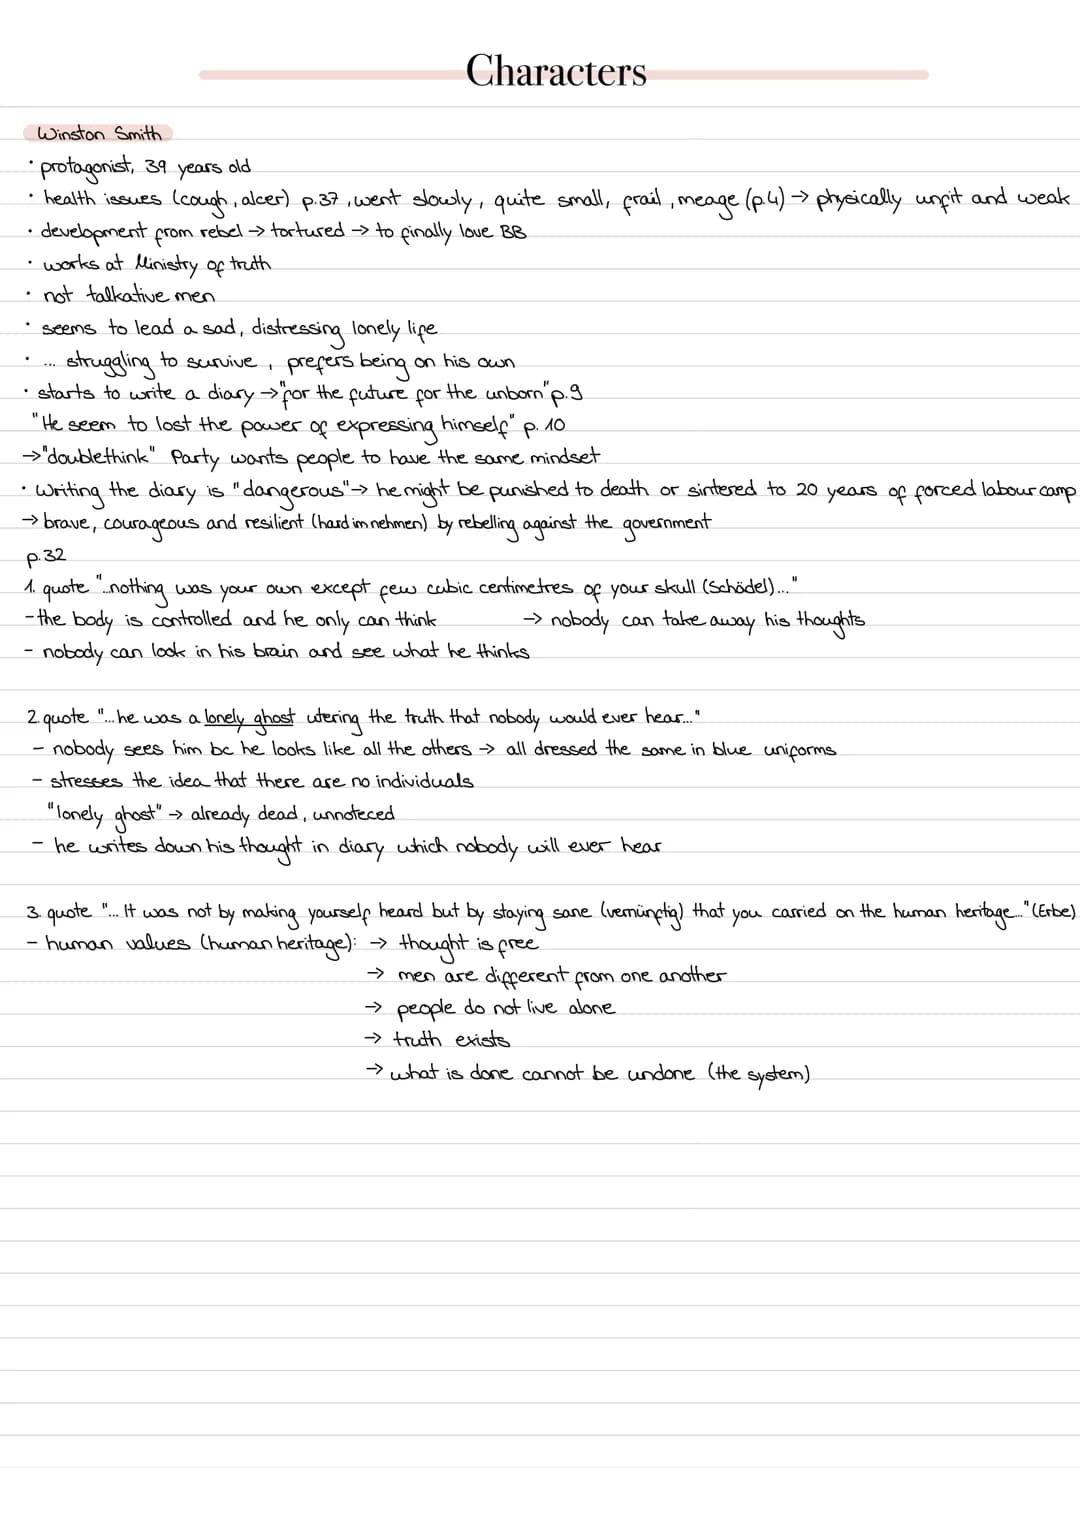 Characters
Winston Smith
• protagonist, 39 years old
• health issues (cough, alcer) p.37, went slowly, quite small, frail, meage (p.4) → physically unfit and weak
• development from rebel → tortured → to finally love BB
• works at Ministry of truth
• not talkative men
• seems to lead a sad, distressing lonely life
• ... struggling to survive, prefers being on his own
• starts to write a diary → "for the future for the unborn" p.9
"He seem to lost the power of expressing himself" p. 10
→ "doublethink" Party wants people to have the same mindset
• Writing the diary is "dangerous" → he might be punished to death or sintered to 20 years of forced labour camp
→ brave, courageous and resilient (hard im nehmen) by rebelling against the government
p.32
1. quote "...nothing was your own except few cubic centimetres of your skull (Schädel)..."
- the body is controlled and he only can think → nobody can take away his thoughts
- nobody can look in his brain and see what he thinks
2 quote "...he was a lonely ghost utering the truth that nobody would ever hear..."
- nobody sees him bc he looks like all the others → all dressed the same in blue uniforms
- stresses the idea that there are no individuals
"lonely ghost" → already dead, unnoteced
- he writes down his thought in diary which nobody will ever hear
3. quote "... It was not by making yourself heard but by staying sane (vernünftig) that you carried on the human heritage..." (Erbe)
- human values (human heritage): → thought is free
→ men are different from one another
→ people do not live alone
→ truth exists
→ what is done cannot be undone (the system)